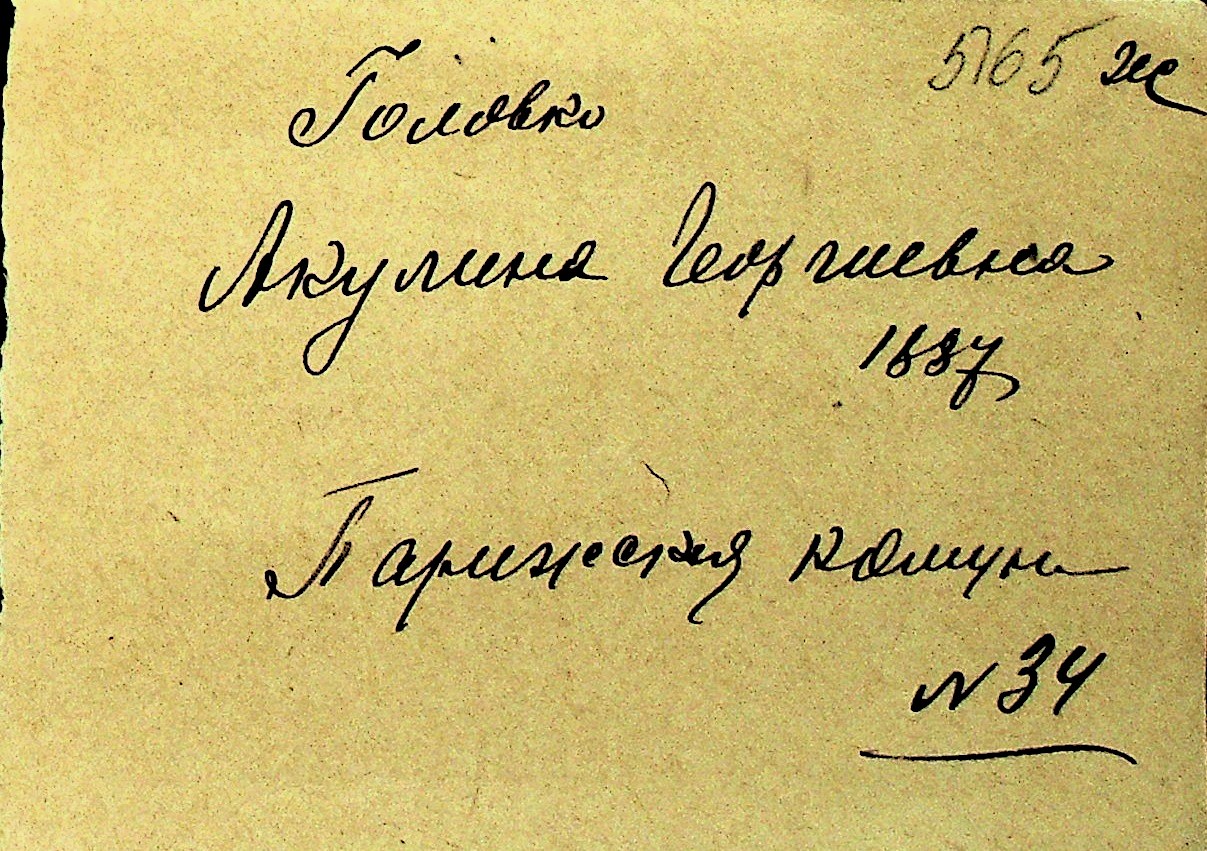 5765 ж
Головко
Акулина Георгиевна
1887
Парижская комун
N 34